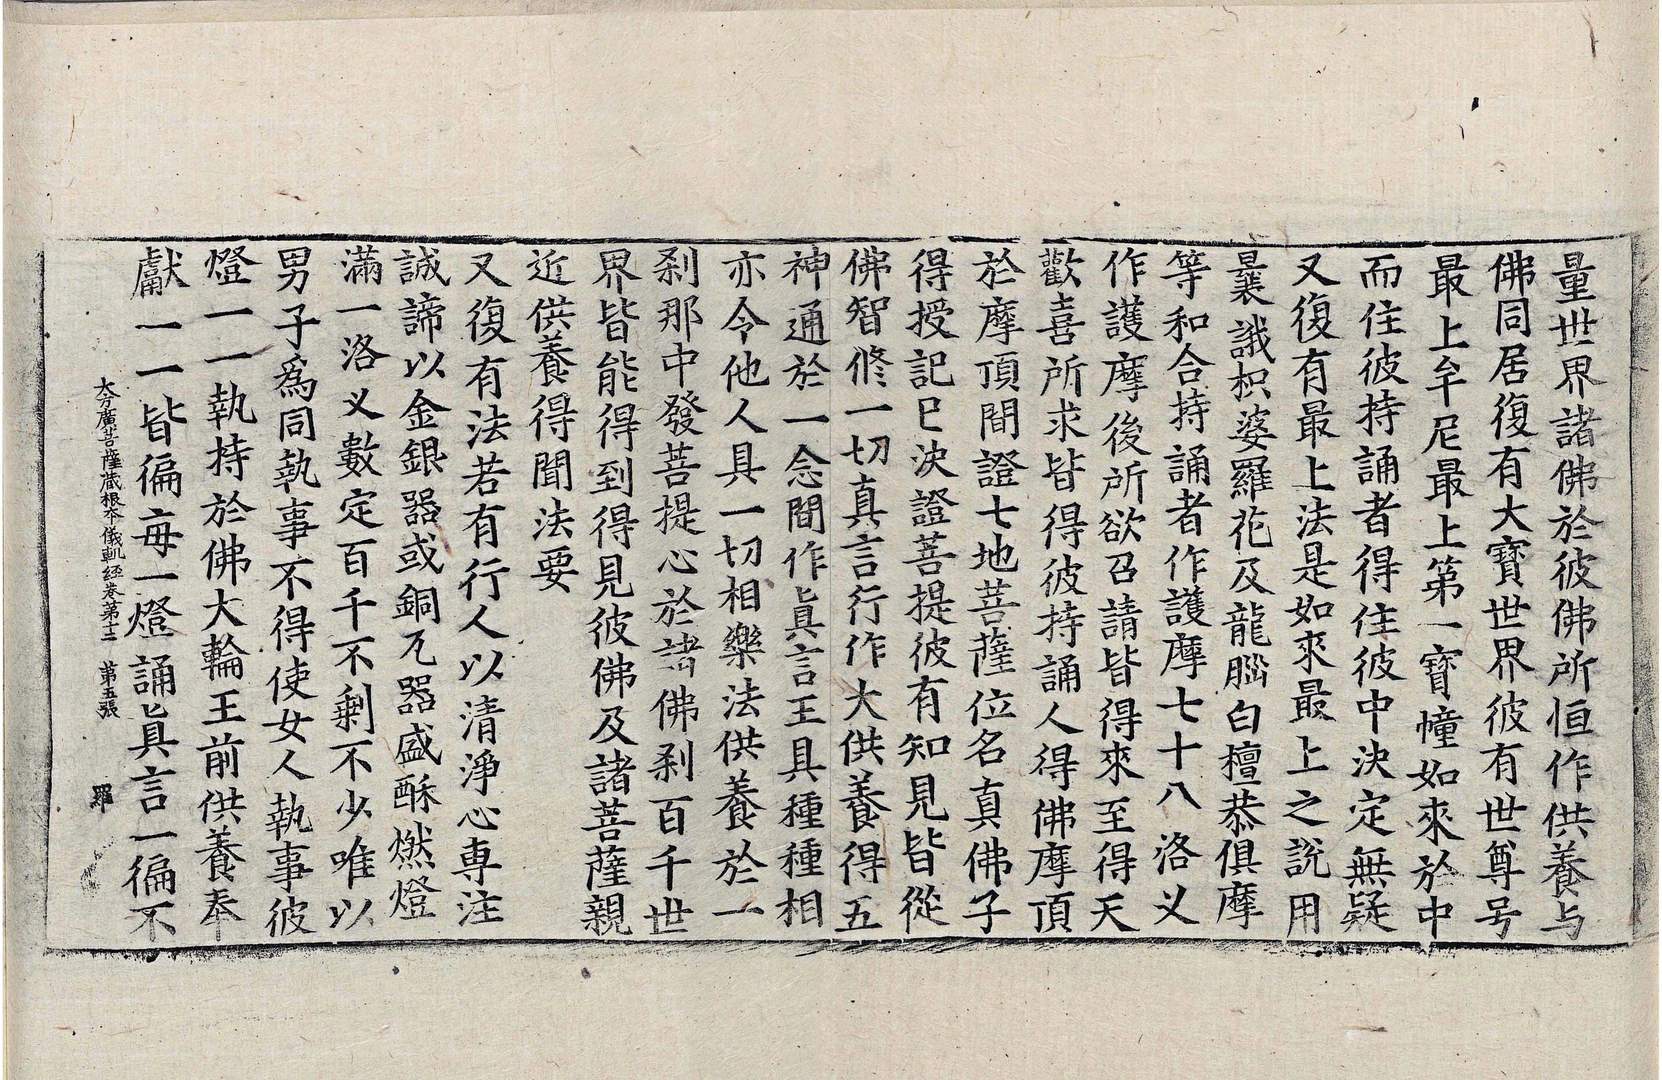 量世界諸佛於彼佛所恒作供養与
佛同居復有大寳世界彼有世尊号
最上牟尼最上第一寳幢如來於中
而住彼持誦者得住彼中決定無疑
又復有最上法是如來最上之說用
曩誐枳婆羅花及龍腦白檀恭俱摩
等和合持誦者作護摩七十八洛义
作護摩後所欲召請皆得來至得天
歡喜所求皆得彼持誦人得佛摩頂
於摩頂間證七地菩薩位名真佛子
得授記已決證菩提彼有知見皆從
佛智修一切真言行作大供養得五
神通於一念間作真言王具種種相
亦令他人具一切相樂法供養於一
刹那中發菩提心於諸佛刹百千世
界皆能得到得見彼佛及諸菩薩親
近供養得聞法要
又復有法若有行人以清淨心専注
誠諦以金銀器或銅瓦器盛酥燃燈
滿一洛义數定百千不剩不少唯以
男子爲同執事不得使女人執事彼
燈一一執持於佛大輪王前供養奉
獻一一皆徧每一燈誦真言一徧不
大方廣菩薩蔵根夲儀軌経卷第十二 第五張 羅